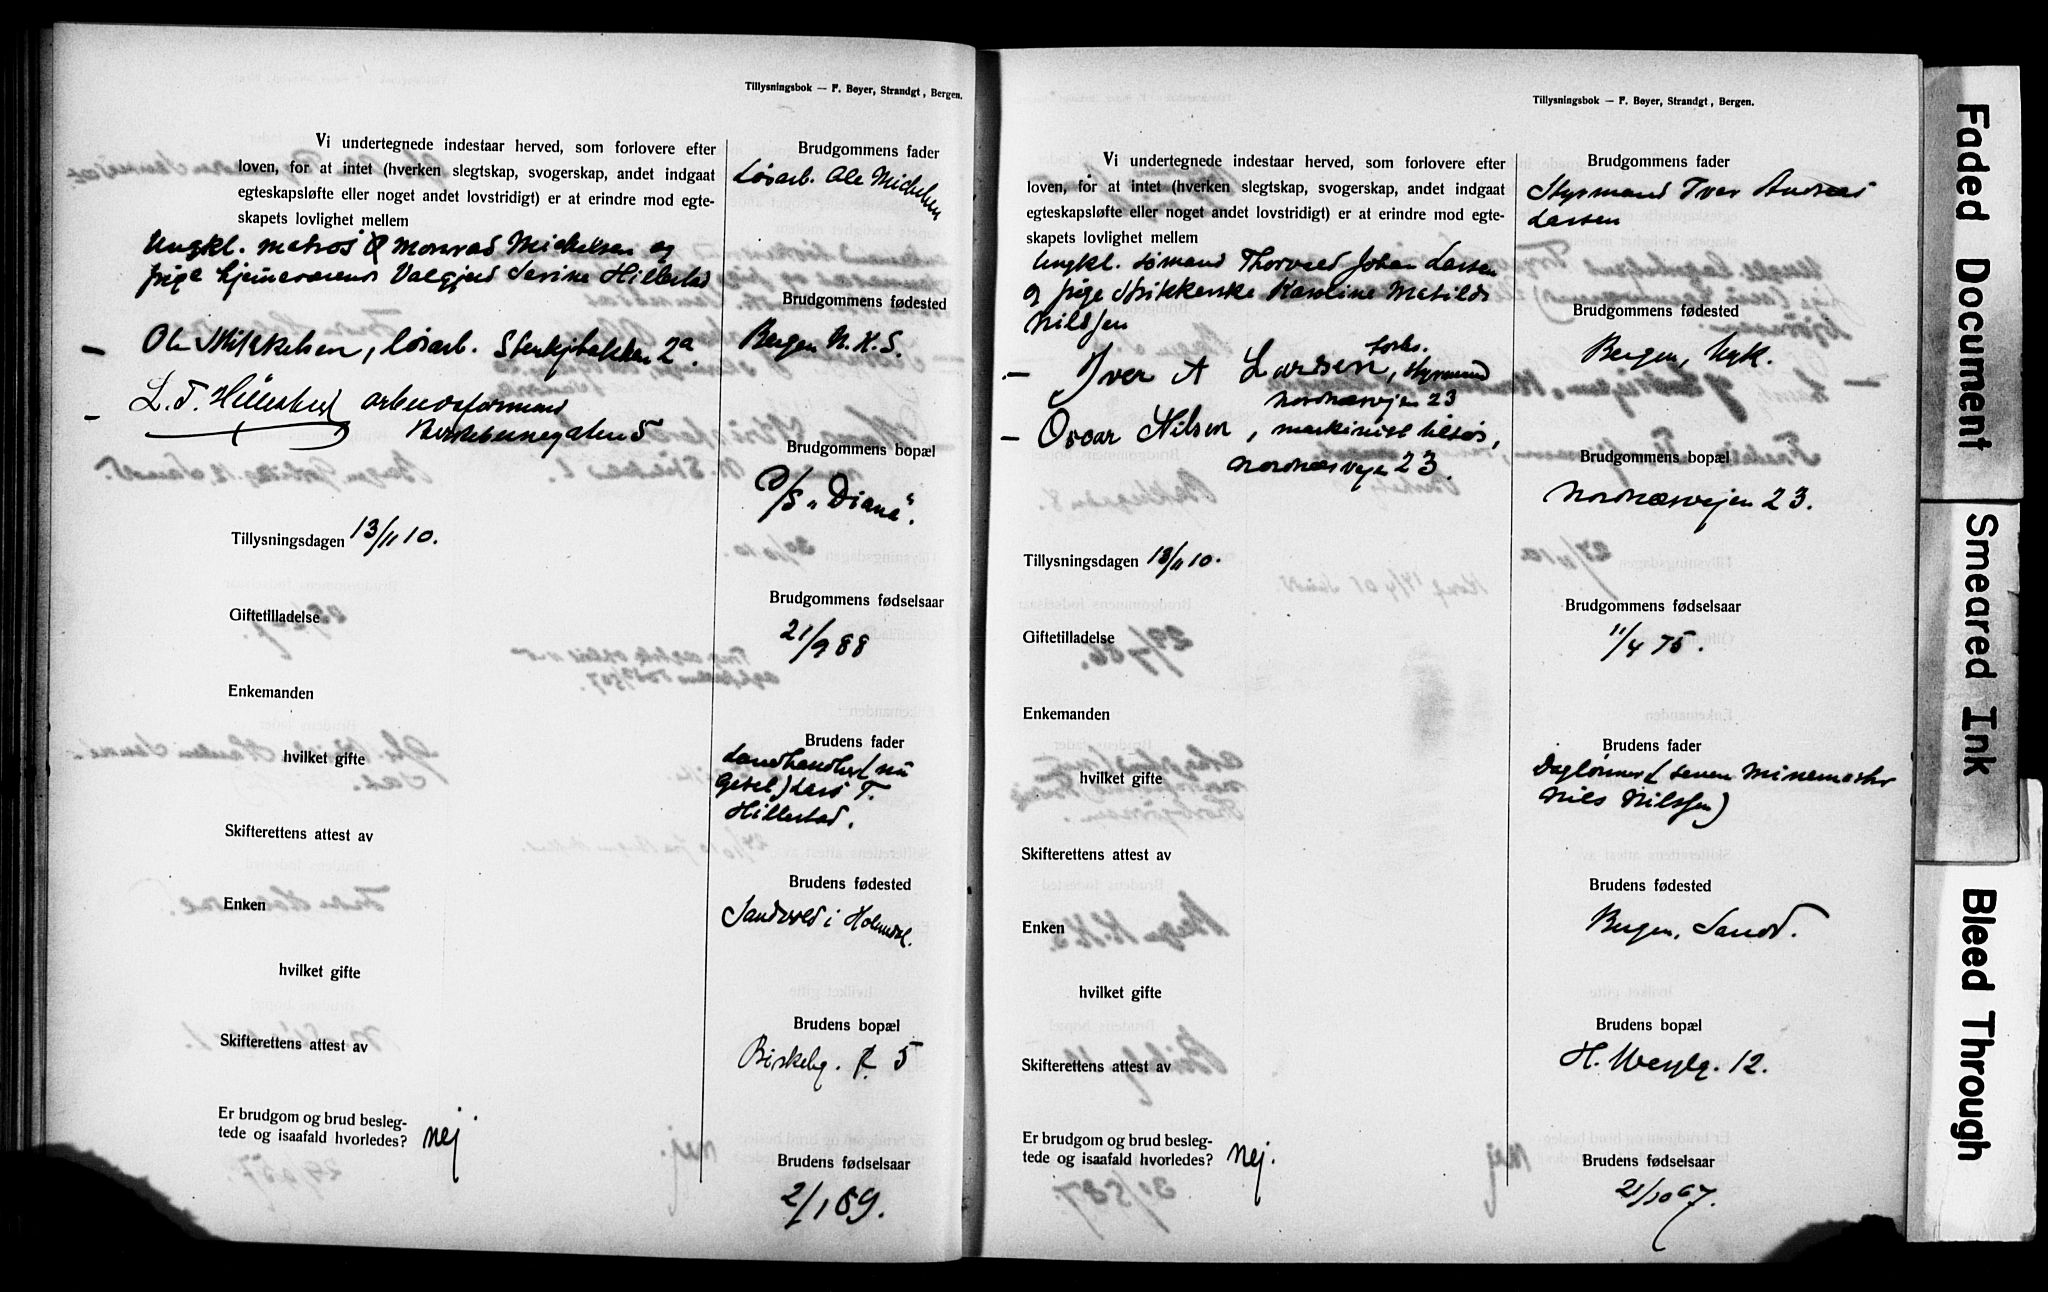 Tillysningsbok — F. Bøyer, Strandgt, Bergen.
Vi undertegnede indestaar herved, som forlovere efter
loven, for at intet (hverken slegtskap, svogerskap, andet indgaat
egteskapsløfte eller noget andet lovstridigt) er at erindre mod egte-
skapets lovlighet mellem
Ungkl. matros Monrad Mickelsen og
pige hjemmeværende Valgjerd Serine Hillestad
Ole Mikkelsen, løsarb. 2a
L. T. Hillestad arbeidsformand
Birkebeinergaten 5
Tillysningsdagen 13/11 10.
Giftetilladelse
Enkemanden
hvilket gifte
Skifterettens attest av
Enken
hvilket gifte
Skifterettens attest av
Er brudgom og brud besleg-
tede og isaafald hvorledes? nej
Brudgommens fader
Løsarb. Ole Mickelsen
Brudgommens fødested
Bergen N.K.S.
Brudgommens bopæl
D/S „Diana".
Brudgommens fødselsaar
21/9 88
Brudens fader
Landhandler (nu
Lars T.
Hillestad.
Brudens fødested
i Holmedal.
Brudens bopæl
Birkebg. 5
Brudens fødselsaar
2/1 89.
Tillysningsbok — F. Bøyer, Strandgt, Bergen.
Vi undertegnede indestaar herved, som forlovere efter
loven, for at intet (hverken slegtskap, svogerskap, andet indgaat
egteskapsløfte eller noget andet lovstridigt) er at erindre mod egte-
skapets lovlighet mellem
Ungkl. sømand Thorvald Johan Larsen
og pige strikkerske Karoline Matilde
Nilssen
Iver A Larsen, styrmand
Nordnæsvejen 23
Oscar Nilsen, maskinist tilsjøs,
Nordnæsvejen 23.
Tillysningsdagen 13/11 10.
Giftetilladelse
Enkemanden
hvilket gifte
Skifterettens attest av
Enken
hvilket gifte
Skifterettens attest av
Er brudgom og brud besleg-
tede og isaafald hvorledes? nej.
Brudgommens fader
Styrmand Iver Andreas
Larsen
Brudgommens fødested
Bergen, Nyk.
Brudgommens bopæl
Nordnæsvejen 23.
Brudgommens fødselsaar
11/4 75.
Brudens fader
Daglønner (senere Minemester
Nils Nilssen)
Brudens fødested
Bergen, Sandv.
Brudens bopæl
H. Wesselsg. 12.
Brudens fødselsaar
21/10 67.
Faded Document
Smeared Ink
Bleed Through